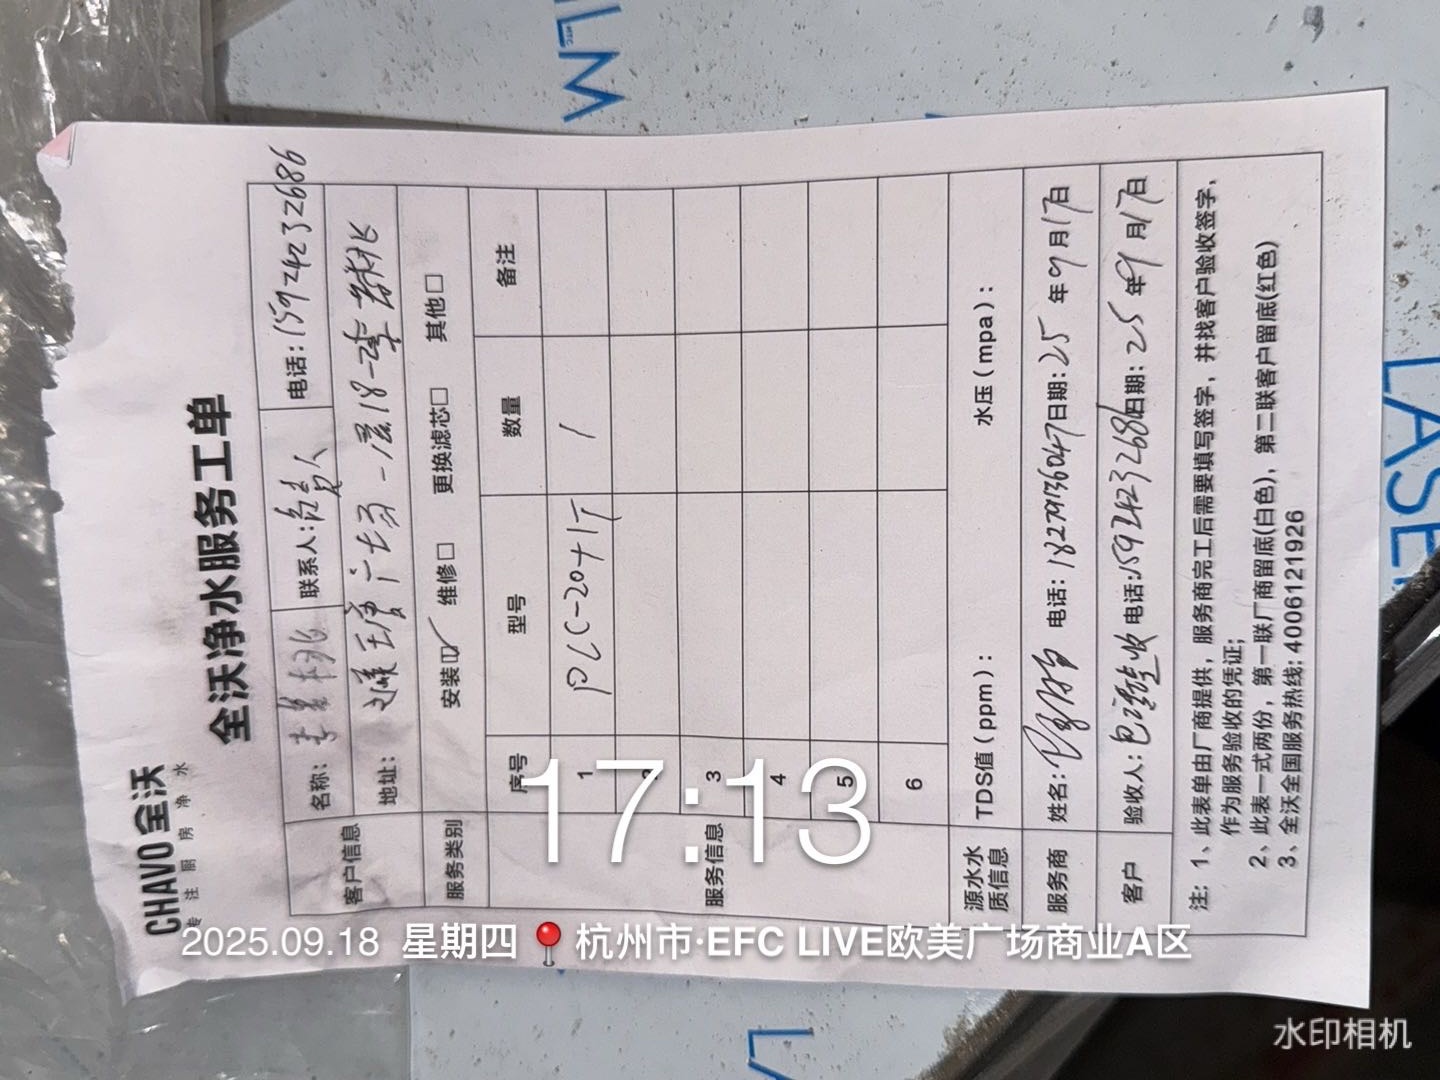 CHAVO 全沃
专注厨房净水
全沃净水服务工单
客户信息 名称: 联系人: 负责人 电话: 15924232686
地址: 广场一层18-李
服务类别 安装☑ 维修□ 更换滤芯□ 其他□
服务信息 序号 型号 数量 备注
1 PLC-20 1
2
3
4
5
6
源水水质信息 TDS值(ppm): 水压(mpa):
服务商 姓名: 电话: 18279136047 日期: 25年9月17日
客户 验收人: 电话: 15924232686 日期: 25年9月17日
注: 1、此表单由厂商提供,服务商完工后需要填写签字,并找客户验收签字,
作为服务验收的凭证;
2、此表一式两份,第一联厂商留底(白色),第二联客户留底(红色)
3、全沃全国服务热线: 4006121926
FILM
LASER
LA
17:13
2025.09.18 星期四 杭州市·EFC LIVE欧美广场商业A区
水印相机